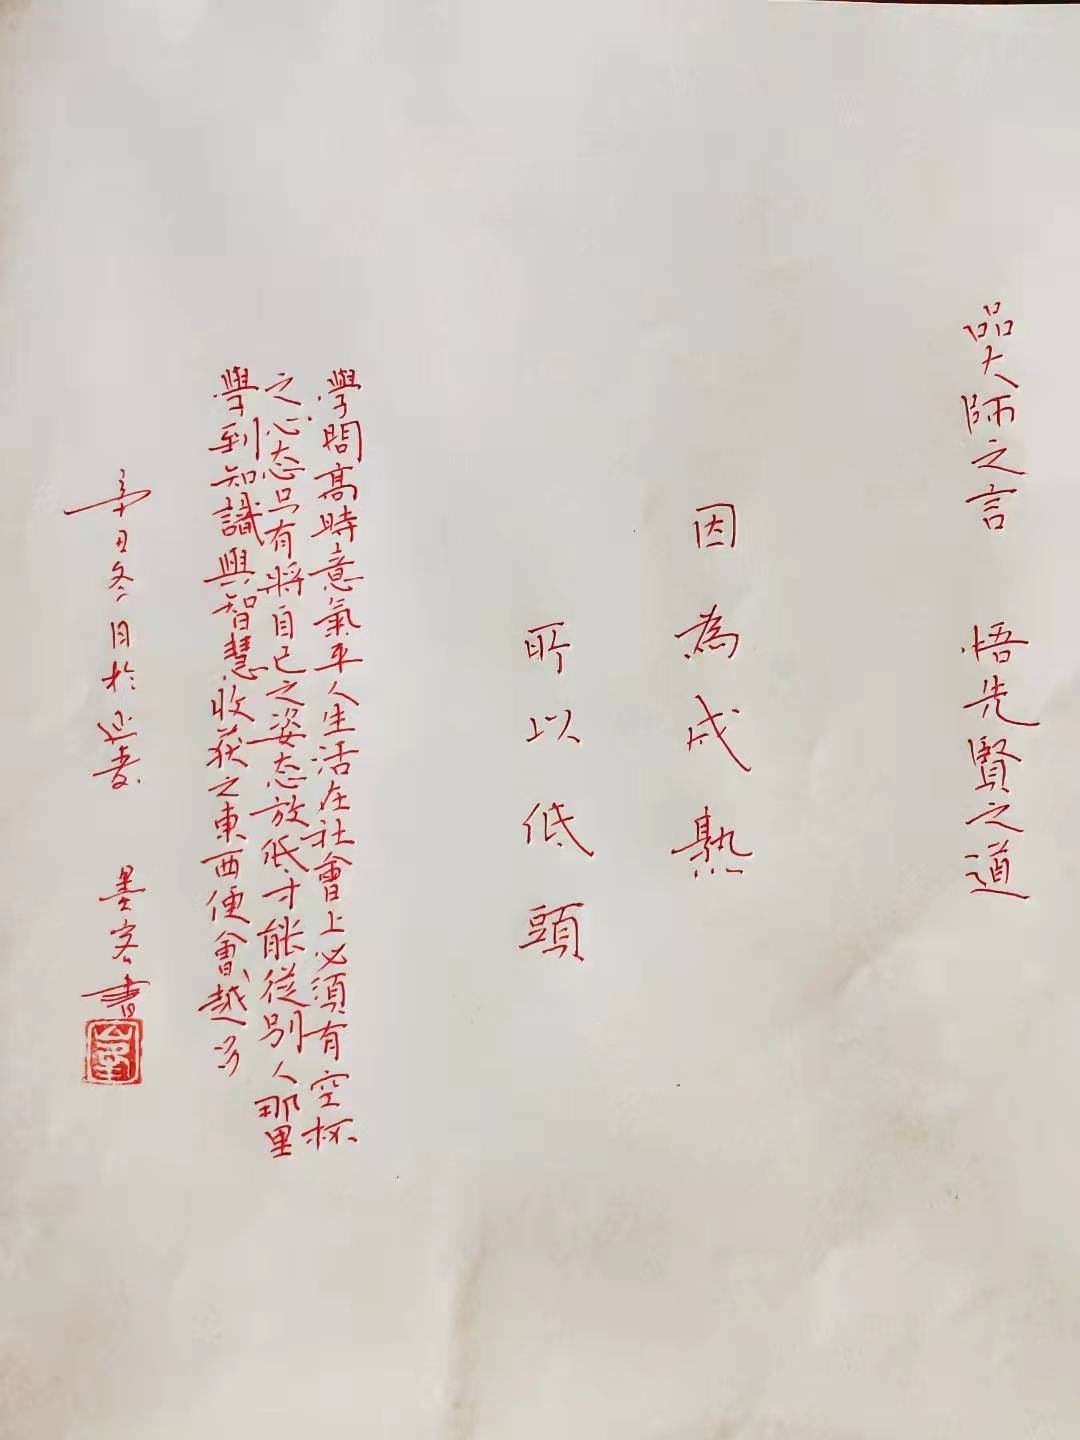 品大師之言 悟先賢之道
因為成熟
所以低頭
學問高時意氣平人生活在社會上必須有空杯
之心态只有將自己之姿态放低才能從别人那里
學到知識與智慧收获之東西便會越多
辛丑冬月於 墨客書